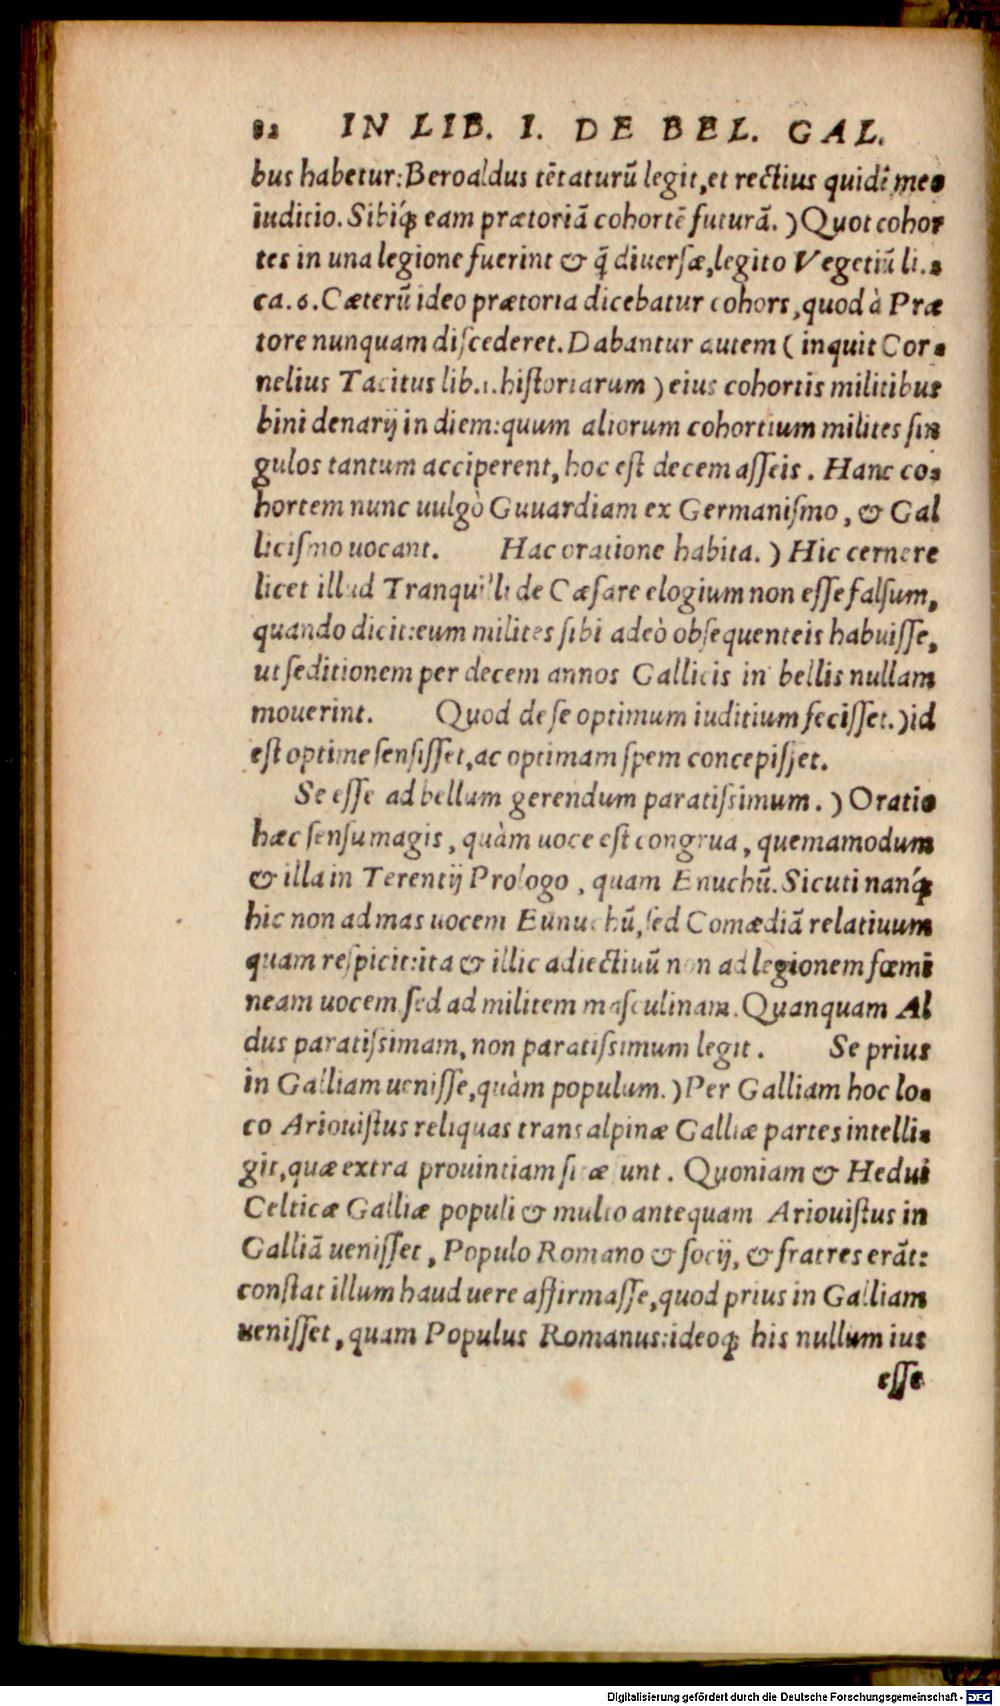 82 IN LIB. I. DE BEL. GAL.
bus habetur: Beroaldus tētaturū legit, et rectius quidē meo
iuditio. Sibiq́; eam prætoriā cohortē futurā.) Quot cohor
tes in una legione fuerint & q̄ diuersæ, legito Vegetiū li.2
ca. 6. Cæterū ideo prætoria dicebatur cohors, quod à Præ
tore nunquam discederet. Dabantur autem (inquit Cor-
nelius Tacitus lib.1. historiarum) eius cohortis militibus
bini denarij in diem: quum aliorum cohortium milites sin
gulos tantum acciperent, hoc est decem asseis. Hanc co-
hortem nunc uulgò Guuardiam ex Germanismo, & Gal
licismo uocant. Hac oratione habita.) Hic cernere
licet illud Tranquilli de Cæsare elogium non esse falsum,
quando dicit: eum milites sibi adeò obsequenteis habuisse,
ut seditionem per decem annos Gallicis in bellis nullam
mouerint. Quod de se optimum iuditium fecisset.) id
est optime sensisset, ac optimam spem concepisset.
Se esse ad bellum gerendum paratissimum.) Oratio
hæc sensu magis, quàm uoce est congrua, quemamodum
& illa in Terentij Prologo, quam Enuchū. Sicuti nanq́;
hic non ad mas uocem Eunuchū, sed Comædiā relatiuum
quam respicit: ita & illic adiectiuū non ad legionem fœmi
neam uocem, sed ad militem masculinam. Quanquam Al
dus paratissimam, non paratissimum legit. Se prius
in Galliam uenisse, quàm populum.) Per Galliam hoc lo-
co Ariouistus reliquas transalpinæ Galliæ partes intelli-
git, quæ extra prouintiam sitæ sunt. Quoniam & Hedui
Celticæ Galliæ populi & multo antequam Ariouistus in
Galliā uenisset, Populo Romano & socij, & fratres erāt:
constat illum haud uere affirmasse, quod prius in Galliam
uenisset, quam Populus Romanus: ideoq; his nullum ius
esse
Digitalisierung gefördert durch die Deutsche Forschungsgemeinschaft - DFG